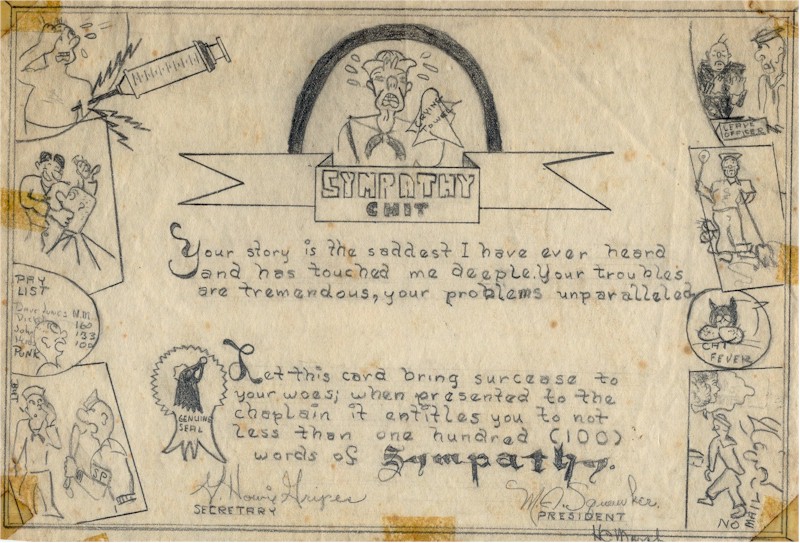 CRYING TOWEL
SYMPATHY
CHIT
LEAVE
OFFICER
Your story is the saddest I have ever heard
and has touched me deeple. Your troubles
are tremendous, your problems unparalleled
PAY
LIST
160
John 133
100
PUNK
CAT
FEVER
Let this card bring surcease to
your woes; when presented to the
chaplain it entitles you to not
less than one hundred (100)
words of Sympathy.
GENUINE
SEAL
SP
NO
MAIL
G. Howie Gripes
SECRETARY
M. A. Squawker
PRESIDENT